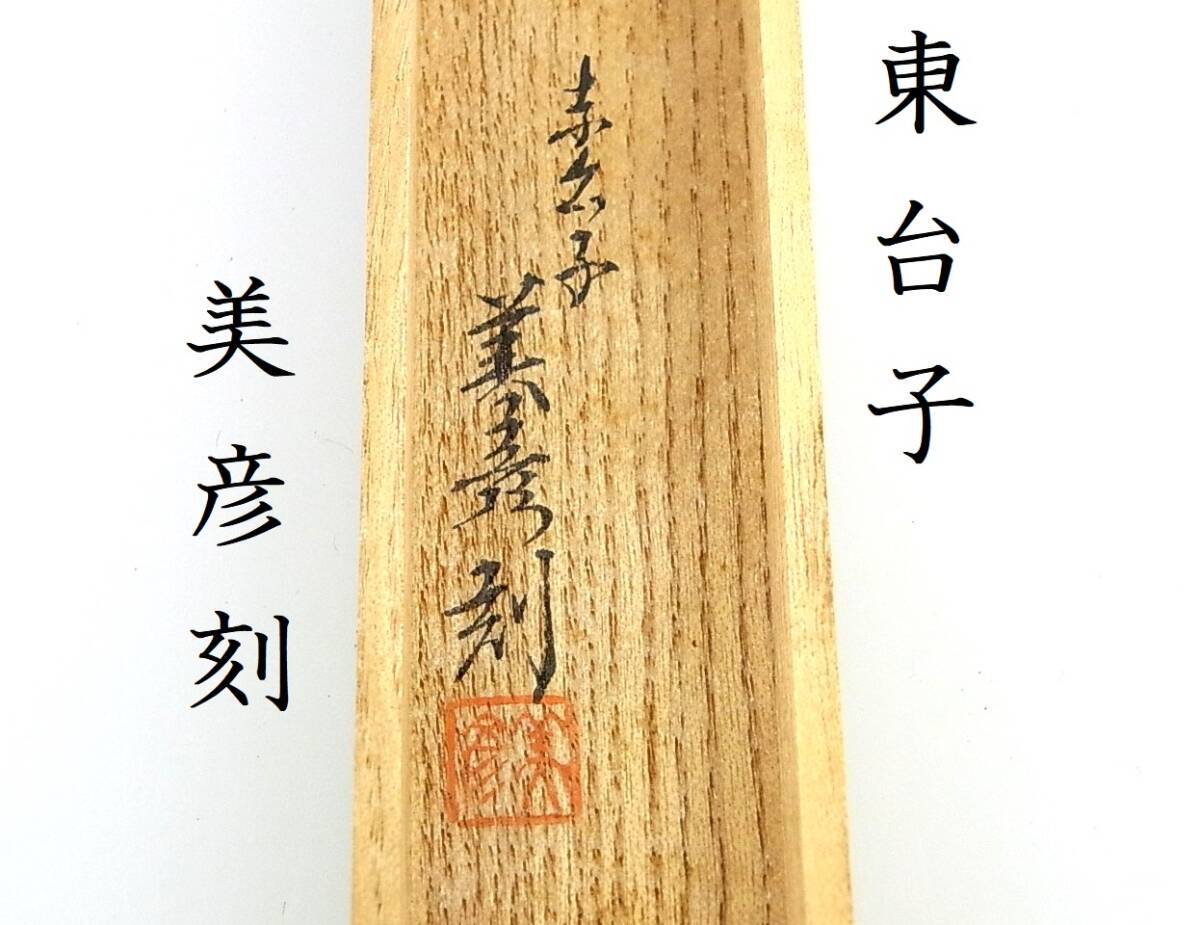 東台子
東台子
美彦刻
美彦
美彦刻